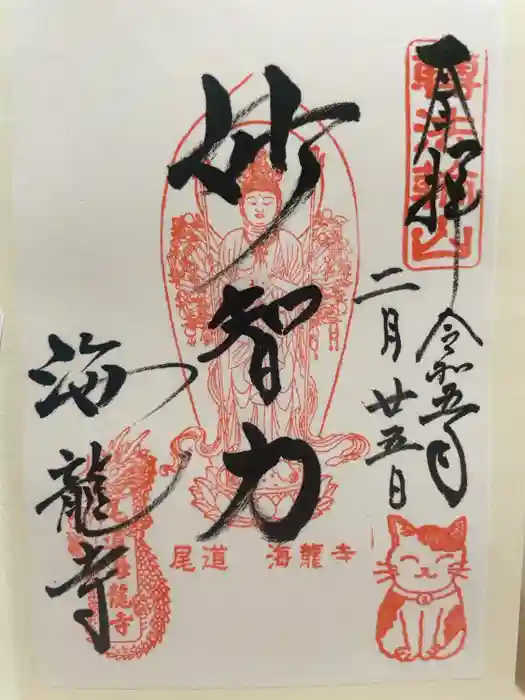 轉法輪山
奉拝
令和五年
二月廿五日
妙智力
海龍寺
尾道 海龍寺